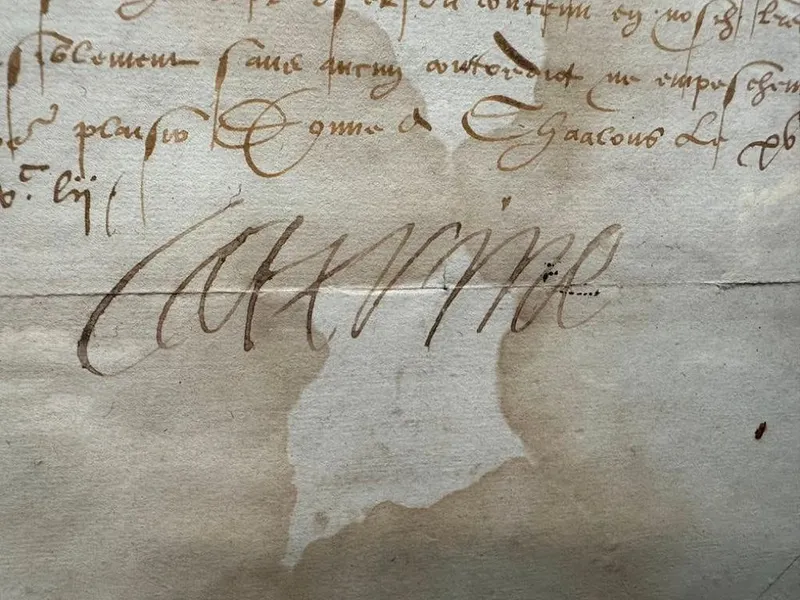 du contenu en nosd. lres
siblement sans aucun contredict ne empeschem
plaisir Donne a Chaalons Le xv
vc. lij
Caterine